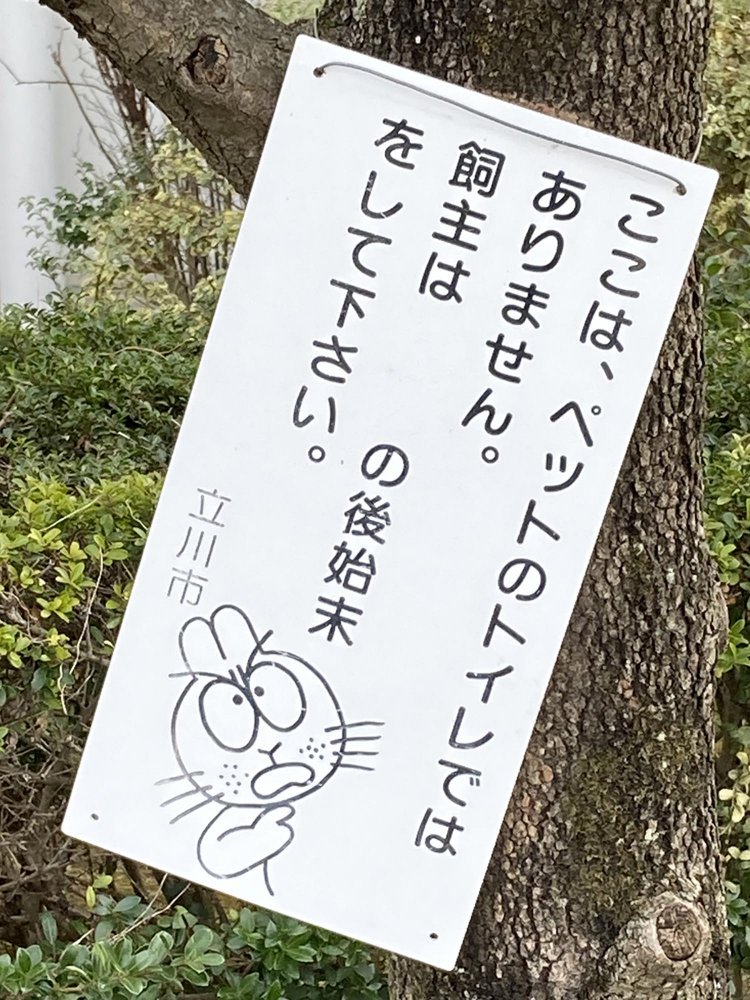 ここは、ペットのトイレでは
ありません。
飼主は の後始末
をして下さい。
立川市